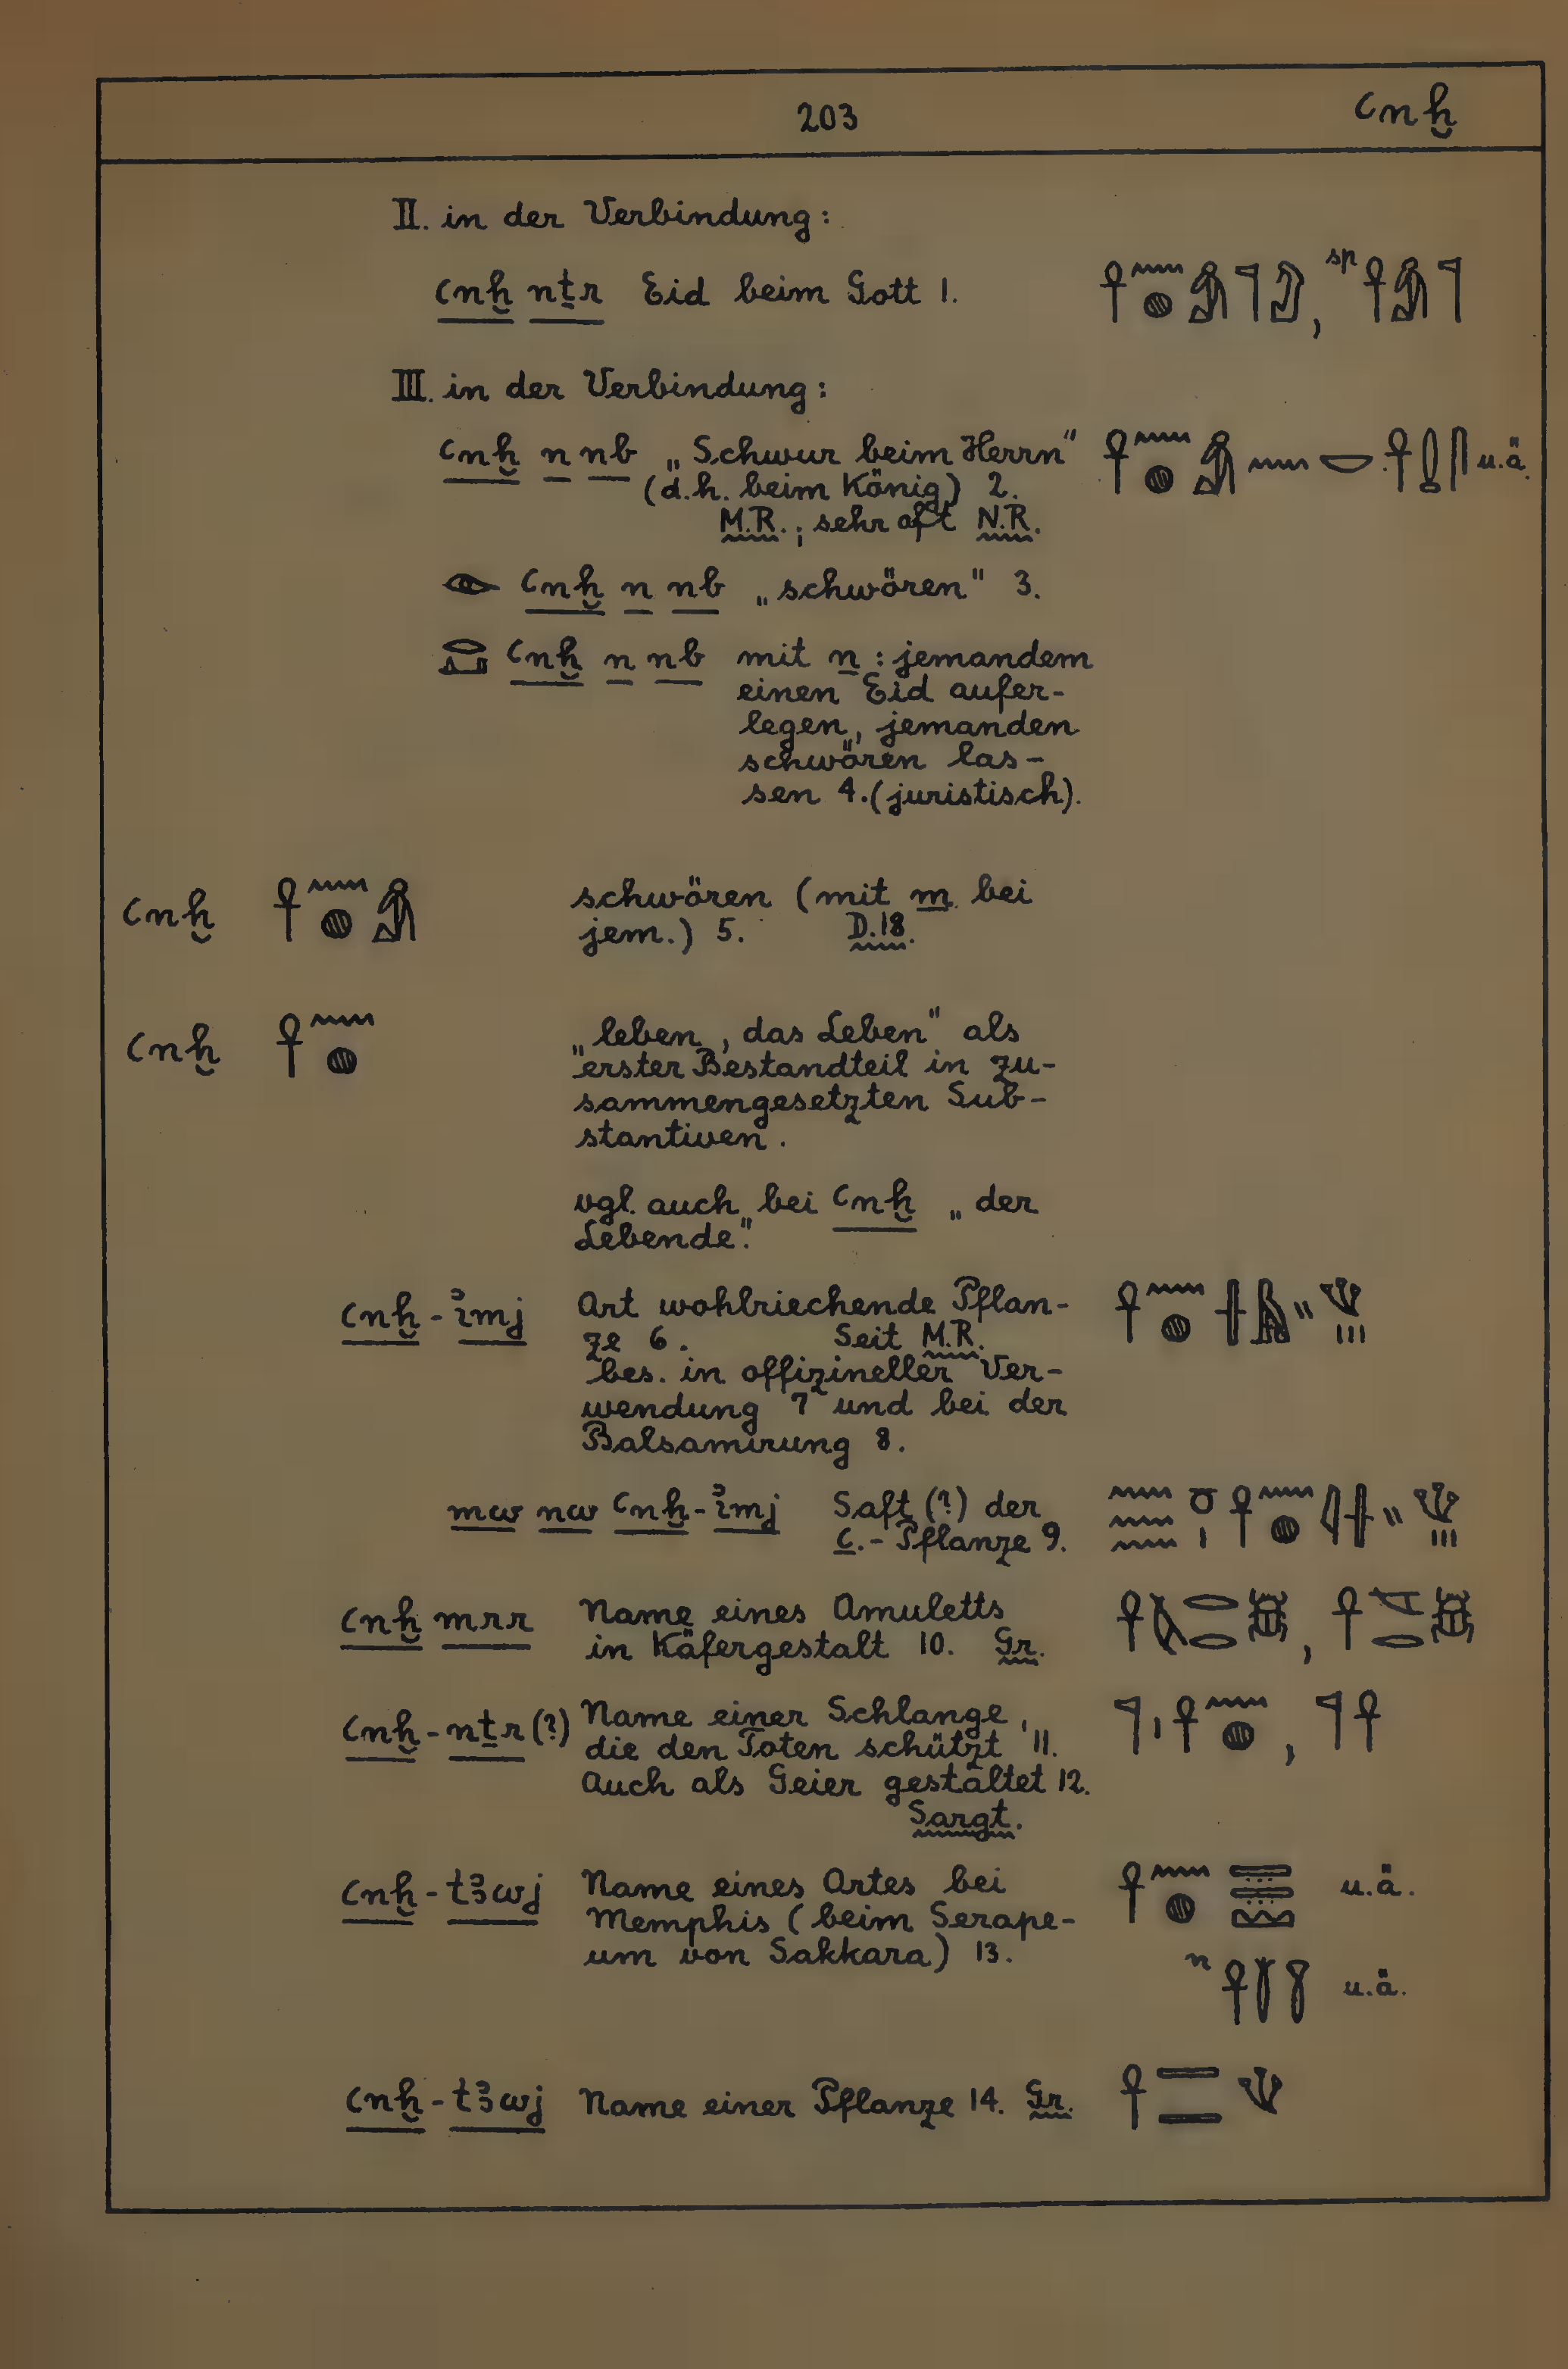 203 ꜥnḫ
II. in der Verbindung:
ꜥnḫ nṯr Eid beim Gott 1. 𓋹𓈖𓐍𓀁𓊹, sp 𓋹𓀁𓊹
III. in der Verbindung:
ꜥnḫ n nb „Schwur beim Herrn" 𓋹𓈖𓐍𓀁𓈖𓎟𓋹𓍑𓋴 u.ä.
(d.h. beim König) 2.
M.R.; sehr oft N.R.
𓁹 ꜥnḫ n nb „schwören" 3.
𓂋𓂞 ꜥnḫ n nb mit n: jemandem
einen Eid aufer-
legen, jemanden
schwören las-
sen 4. (juristisch).
ꜥnḫ 𓋹𓈖𓐍𓀁 schwören (mit m bei
jem.) 5. D.18.
ꜥnḫ 𓋹𓈖𓐍 „leben, das Leben" als
erster Bestandteil in zu-
sammengesetzten Sub-
stantiven.
vgl. auch bei ꜥnḫ „der
Lebende".
ꜥnḫ-ı͗mj Art wohlriechende Pflan- 𓋹𓈖𓐍𓏶𓅓𓏭𓆰𓏥
ze 6. Seit M.R.
bes. in offizineller Ver-
wendung 7 und bei der
Balsamirung 8.
mw nw ꜥnḫ-ı͗mj Saft (?) der 𓈗𓏌𓏤𓋹𓈖𓐍𓇋𓏶𓏭𓆰𓏥
ꜥ.-Pflanze 9.
ꜥnḫ mrr Name eines Amuletts 𓋹𓌸𓂋𓂋𓆣, 𓋹𓍋𓂋𓆣
in Käfergestalt 10. Gr.
ꜥnḫ-nṯr (?) Name einer Schlange, 𓊹𓏤𓋹𓈖𓐍, 𓊹𓋹
die den Toten schützt 11.
Auch als Geier gestaltet 12.
Sargt.
ꜥnḫ-tꜣwj Name eines Ortes bei 𓋹𓈖𓐍𓇾𓇾𓈉 u.ä.
Memphis (beim Serape-
um von Sakkara) 13.
n 𓋹𓇅𓇓 u.ä.
ꜥnḫ-tꜣwj Name einer Pflanze 14. Gr. 𓋹𓇿𓇿𓆰